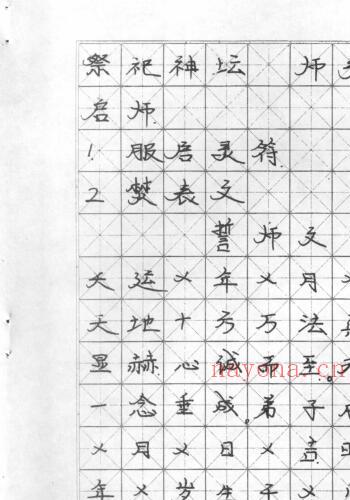 祭祀神坛 师
启师
1 服启灵符
2 焚表文
誓师文
大运乂年乂月乂
天地十方万法
显赫心诚而至。
一念垂成。弟子
乂月乂日乂吉
年乂岁生
nayona.cn